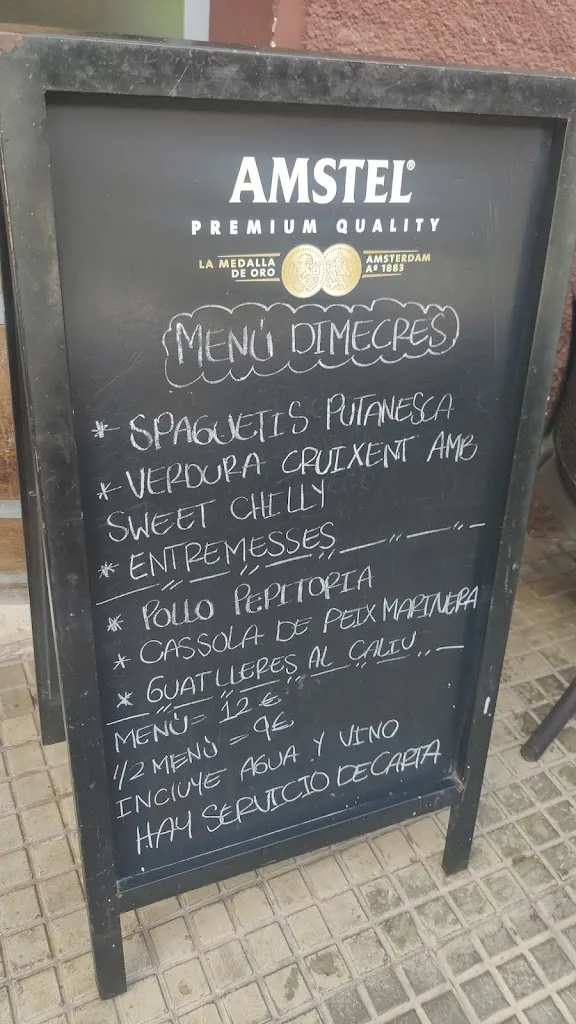 AMSTEL®
PREMIUM QUALITY
LA MEDALLA DE ORO
AMSTERDAM Aº 1883
MENÚ DIMECRES
* SPAGUETIS PUTANESCA
* VERDURA CRUIXENT AMB
SWEET CHILLY
* ENTREMESSES
* POLLO PEPITORIA
* CASSOLA DE PEIX MARINERA
* GUATLLERES AL CALIU
MENÚ = 12 €
1/2 MENÚ = 9€
INCLUYE AGUA Y VINO
HAY SERVICIO DE CARTA